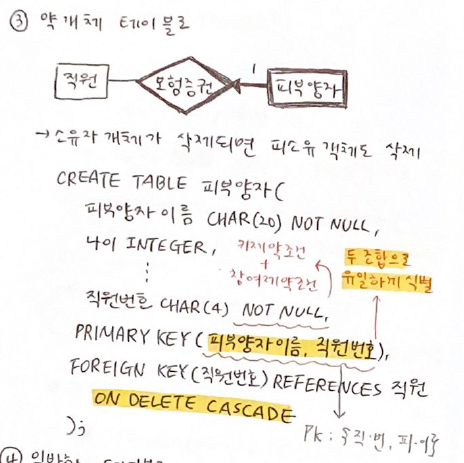 ③ 약개체 테이블로
직원 보험증권 1 피부양자
→ 소유자 개체가 삭제되면 피소유 객체도 삭제
CREATE TABLE 피부양자(
피부양자이름 CHAR(20) NOT NULL,
나이 INTEGER,
키제약조건
+
참여제약조건
두 조합으로
유일하게 식별
⋮
직원번호 CHAR(4) NOT NULL,
PRIMARY KEY(피부양자이름, 직원번호),
FOREIGN KEY(직원번호) REFERENCES 직원
ON DELETE CASCADE
);
PK:
④